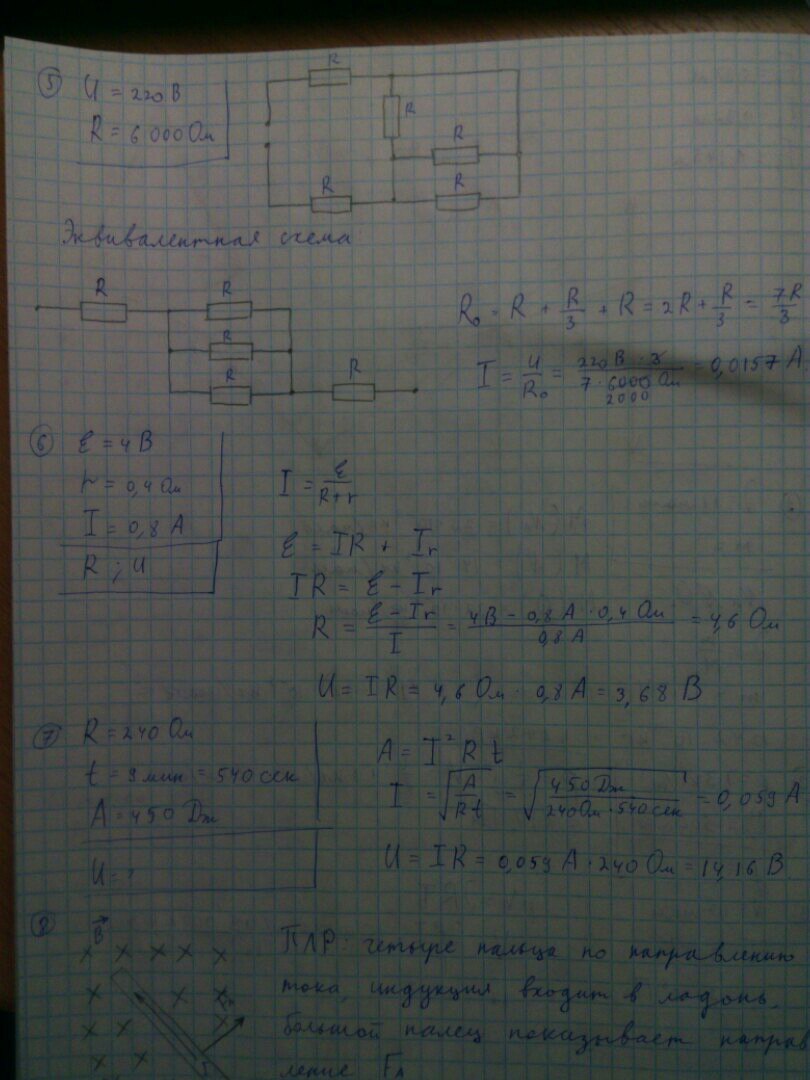 5 U = 220 В
R = 6 000 Ом
R
R
R
R
R
Эквивалентная схема
R
R
R
R
R
R₀ = R + R/3 + R = 2R + R/3 = 7R/3
I = U/R₀ = 220 В · 3 / 7 · 6000 Ом = 0,0157 А
2000
6 ℰ = 4 В
r = 0,4 Ом
I = 0,8 А
R ; U
I = ℰ/(R+r)
ℰ = IR + Ir
IR = ℰ - Ir
R = (ℰ - Ir)/I = (4 В - 0,8 А · 0,4 Ом)/0,8 А = 4,6 Ом
U = IR = 4,6 Ом · 0,8 А = 3,68 В
7 R = 240 Ом
t = 9 мин = 540 сек
A = 450 Дж
U = ?
A = I² R t
I = √(A/Rt) = √(450 Дж/240 Ом · 540 сек) = 0,059 А
U = IR = 0,059 А · 240 Ом = 14,16 В
8 B⃗
ПЛР: четыре пальца по направлению
тока, индукция входит в ладонь,
большой палец показывает направ
ление Fл